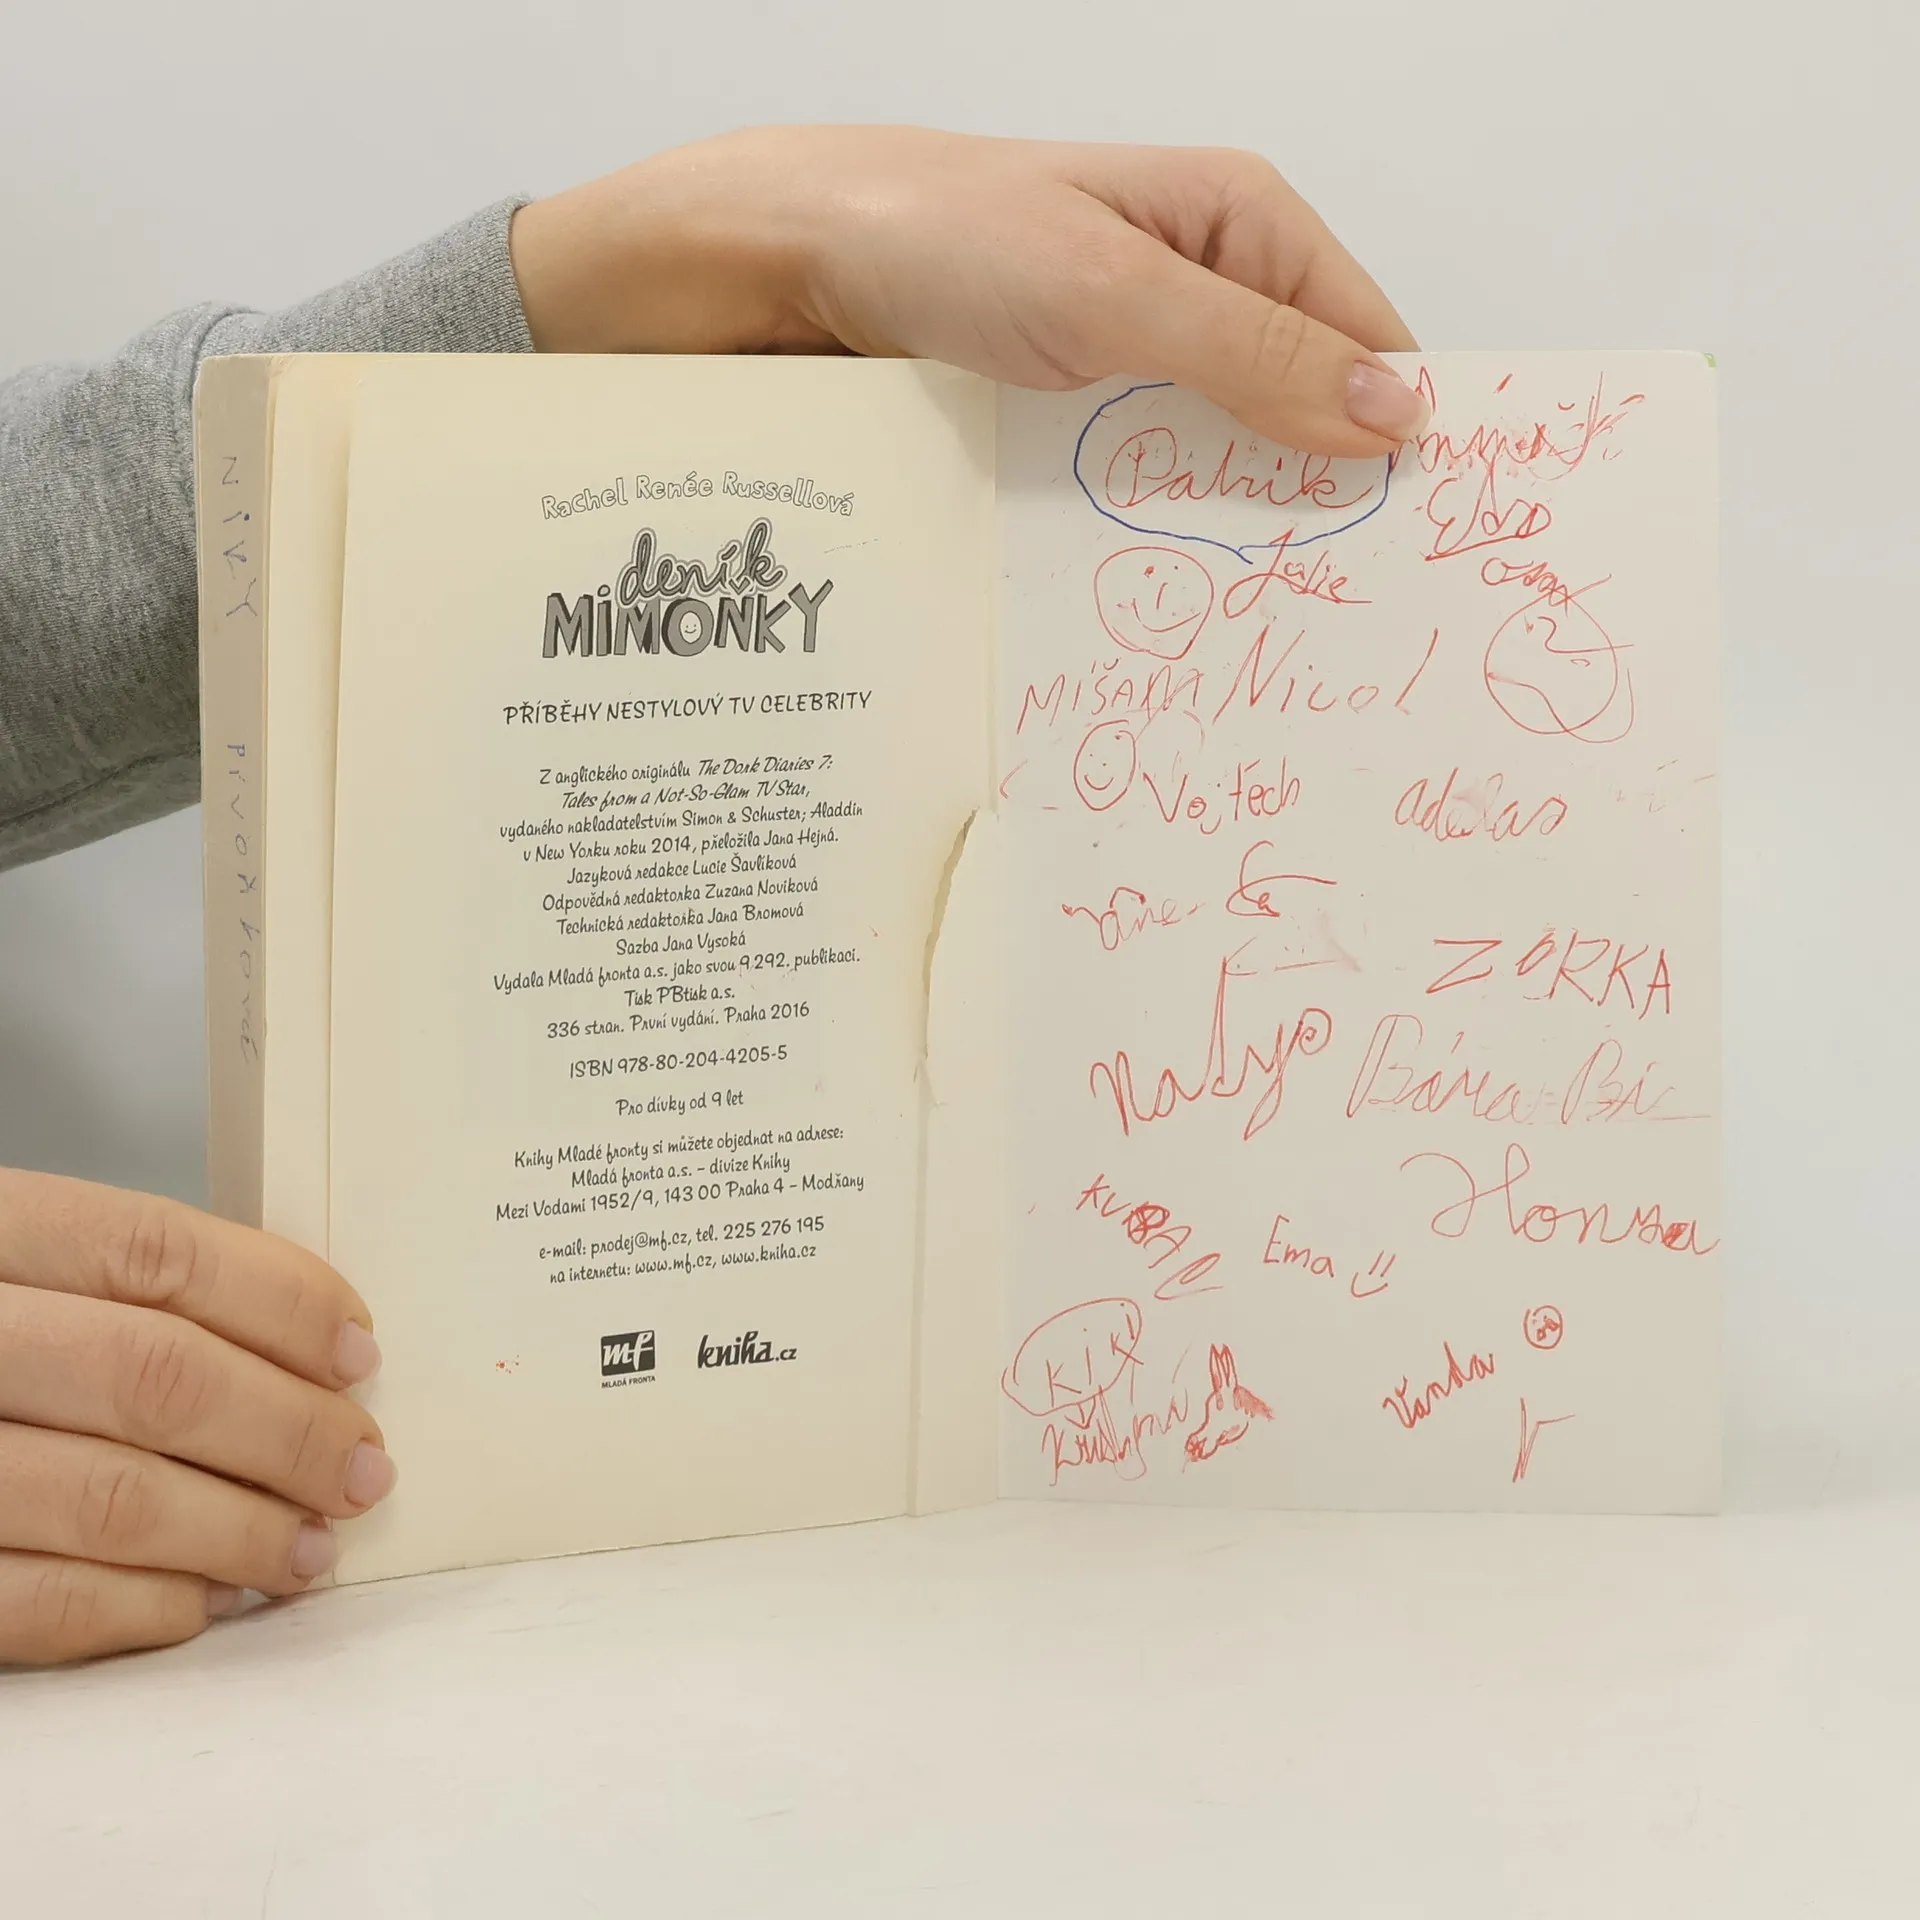 NiKY
Rachel Renée Russellová
deník
MiMOŇKY
PŘÍBĚHY NESTYLOVÝ TV CELEBRITY
Z anglického originálu The Dork Diaries 7:
Tales from a Not-So-Glam TV Star,
vydaného nakladatelstvím Simon & Schuster; Aladdin
v New Yorku roku 2014, přeložila Jana Hejná.
Jazyková redakce Lucie Šavlíková
Odpovědná redaktorka Zuzana Noviková
Technická redaktorka Jana Bromová
Sazba Jana Vysoká
Vydala Mladá fronta a.s. jako svou 9 292. publikaci.
Tisk PBtisk a.s.
336 stran. První vydání. Praha 2016
ISBN 978-80-204-4205-5
Pro dívky od 9 let
Knihy Mladé fronty si můžete objednat na adrese:
Mladá fronta a.s. – divize Knihy
Mezi Vodami 1952/9, 143 00 Praha 4 – Modřany
e-mail: prodej@mf.cz, tel. 225 276 195
na internetu: www.mf.cz, www.kniha.cz
mf
MLADÁ FRONTA
kniha.cz
Patrik
Julie
MIŠANA Nicol
Vojtěch
ZORKA
Naty
Bára
Honza
Ema
KiKi
Vanda